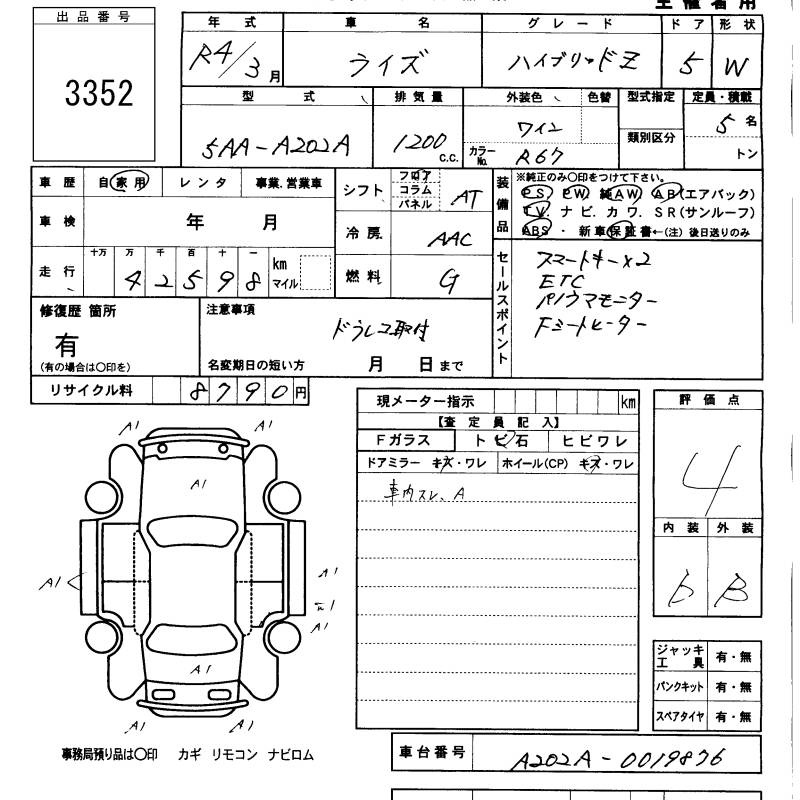 主催者用
出品番号
3352
年式 車名 グレード ドア 形状
R4/3月 ライズ ハイブリッドZ 5 W
型式 排気量 外装色 色替 型式指定 定員・積載
5AA-A202A 1200 c.c. ワイン 5名
カラーNo. R67 類別区分 トン
車歴 自家用 レンタ 事業.営業車
車検 年 月
走行 十万 万 千 百 十 一
4 2 5 9 8 km マイル
シフト フロア コラム パネル AT
冷房 AAC
燃料 G
装備品
※純正のみ〇印をつけて下さい。
PS PW 純AW AB(エアバック)
TV. ナビ. カワ. SR(サンルーフ)
ABS ・ 新車保証書←(注) 後日送りのみ
セールスポイント
スマートキーx2
ETC
パノラマモニター
Fシートヒーター
修復歴 箇所
有
(有の場合は〇印を)
注意事項
ドラレコ取付
名変期日の短い方 月 日まで
リサイクル料 8790円
現メーター指示 km
【査定員記入】
Fガラス トビ石 ヒビワレ
ドアミラー キズ・ワレ ホイール(CP) キズ・ワレ
車内スレ、A
評価点
4
内装 外装
b B
A1 A1
A1
A1 A1
A1
A1
A1 A1
ジャッキ工具 有・無
パンクキット 有・無
スペアタイヤ 有・無
事務局預り品は〇印 カギ リモコン ナビロム
車台番号 A202A-0019876